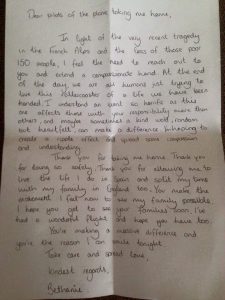 Dear pilots of the plane taking me home,
In light of the very recent tragedy
in the French Alps and the loss of those poor
150 people, I feel the need to reach out to
you and extend a compassionate hand. At the end
of the day, we are all humans just trying to
live this rollercoaster of a life we have been
handed. I understand an event so horrific as this
one affects those with your responsibility more than
others, and maybe sometimes a kind word, random
but heartfelt, can make a difference. I'm hoping to
create a ripple effect and spread some compassion
and understanding.
Thank you for taking me home. Thank you
for doing so safely. Thank you for allowing me to
live the life I do in Spain and split my time
with my family in England too. You make the
excitement I feel now to see my family possible.
I hope you get to see your families soon. I've
had a wonderful flight and hope you have too.
You're making a massive difference and
you're the reason I can smile tonight.
Take care and spread love,
Kindest regards,
Bethanie.